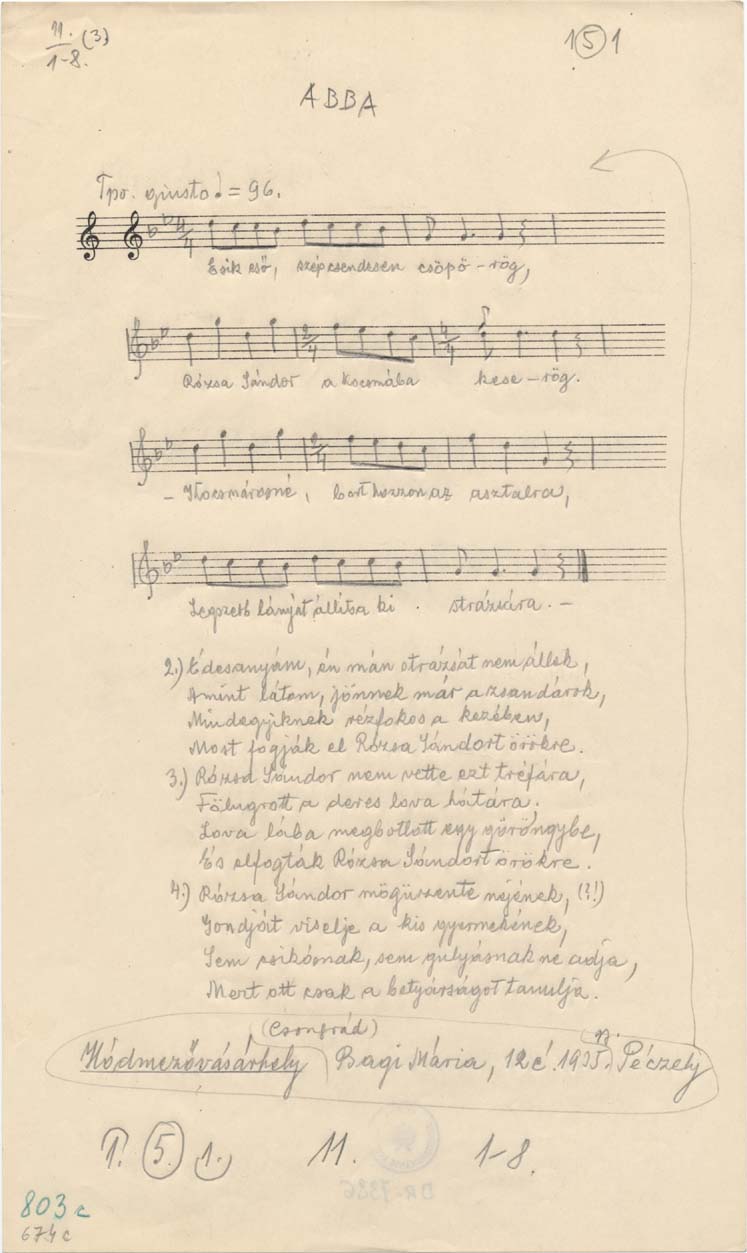 11. (3)
1-8.
1 5 1
ABBA
Tpo. giusto ♩ = 96.
4/4
Esik eső, szép csendesen csöpö - rög,
2/4 4/4
Rózsa Sándor a kocsmába kese - rög.
2/4
- Kocsmárosné, bort hozzon az asztalra,
Legszebb lányját állítsa ki strázsára. -
2.) Édesanyám, én mán strázsát nem állok,
Amint látom, jönnek már a zsandárok,
Mindegyiknek rézfokos a kezében,
Most fogják el Rózsa Sándort örökre.
3.) Rózsa Sándor nem vette ezt tréfára,
Fölugrott a deres lova hátára,
Lova lába megbotlott egy göröngybe,
És elfogták Rózsa Sándort örökre.
4.) Rózsa Sándor mögüzente nejének, (?!)
Gondjóit viselje a kis gyermekének,
Sem csikósnak, sem gulyásnak ne adja,
Mert ott csak a betyárságot tanulja.
(Csongrád)
Hódmezővásárhely Bagi Mária, 12 é. 1935. Péczely
5. 1. 11. 1-8.
BR-7326
803 c
674 c